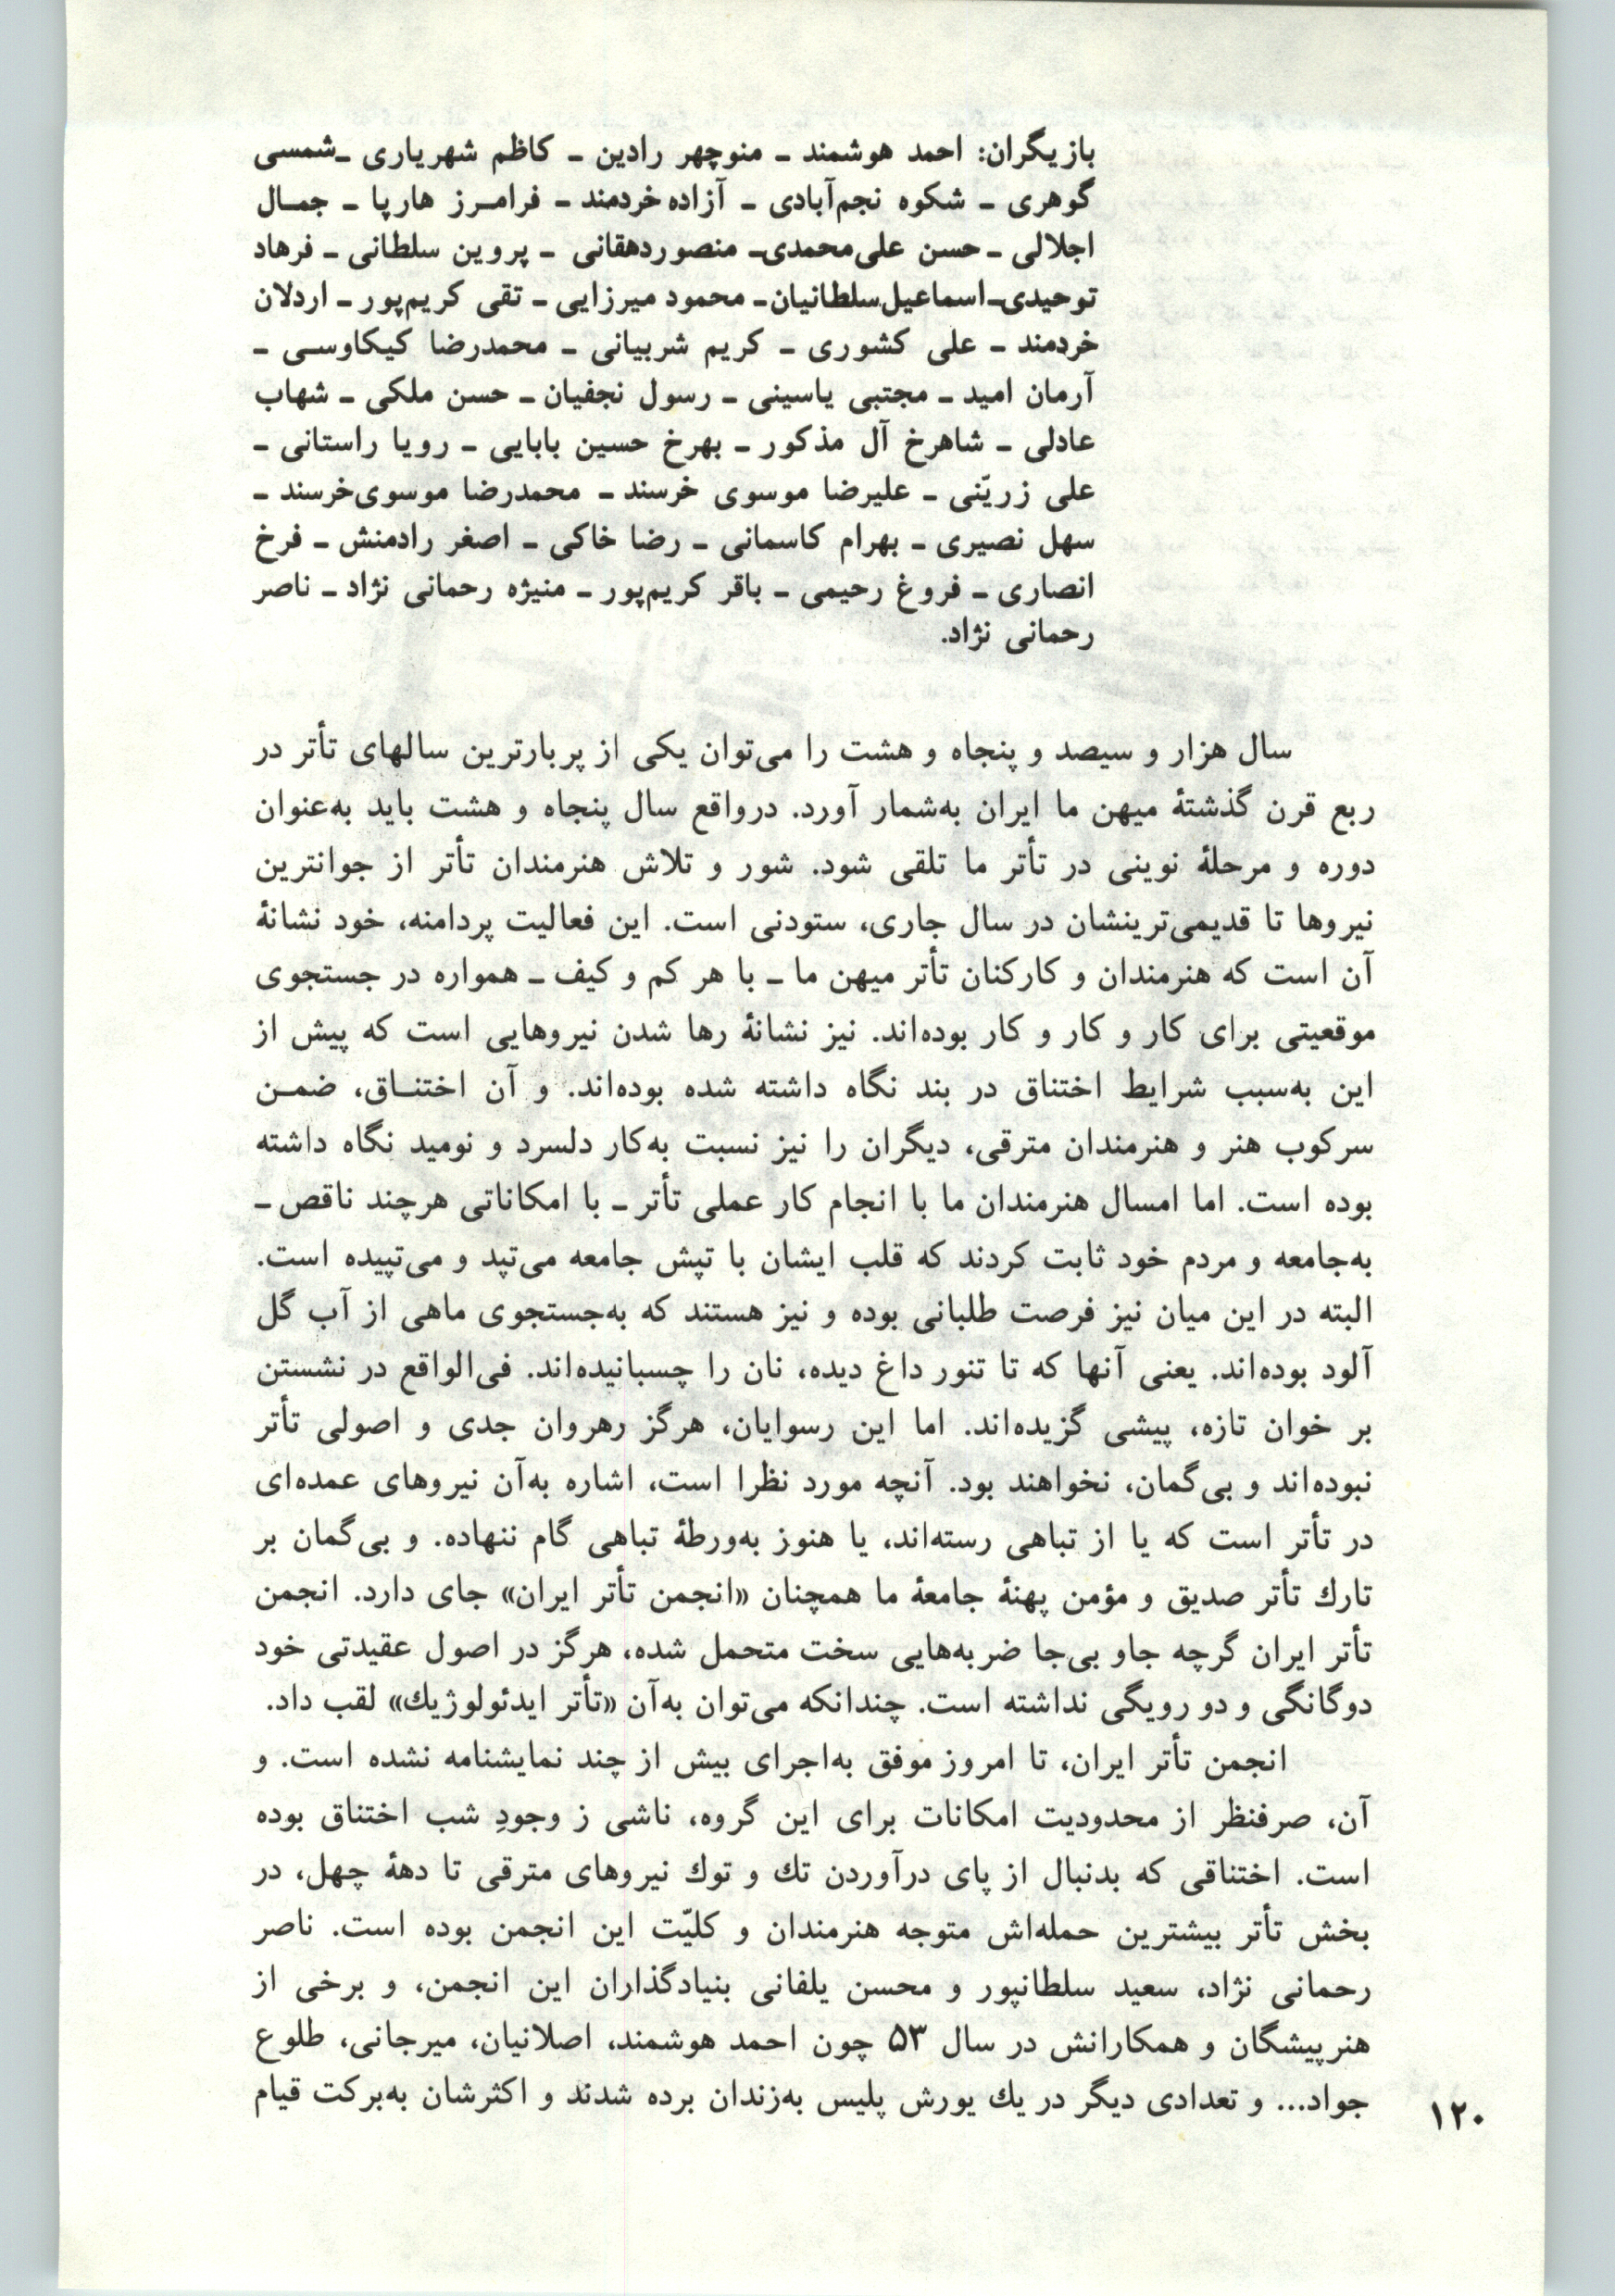 بازیگران: احمد هوشمند ـ منوچهر رادین ـ کاظم شهریاری ـ شمسی
گوهری ـ شکوه نجم‌آبادی ـ آزاده خردمند ـ فرامـرز هارپا ـ جمـال
اجلالی ـ حسن علی‌محمدی ـ منصور دهقانی ـ پروین سلطانی ـ فرهاد
توحیدی ـ اسماعیل سلطانیان ـ محمود میرزایی ـ تقی کریم‌پور ـ اردلان
خردمند ـ علی کشوری ـ کریم شربیانی ـ محمدرضا کیکاوسـی ـ
آرمان امید ـ مجتبی یاسینی ـ رسول نجفیان ـ حسن ملکی ـ شهاب
عادلی ـ شاهرخ آل مذکور ـ بهرخ حسین بابایی ـ رویا راستانی ـ
علی زریّنی ـ علیرضا موسوی خرسند ـ محمدرضا موسوی‌خرسند ـ
سهل نصیری ـ بهرام کاسمانی ـ رضا خاکی ـ اصغر رادمنش ـ فرخ
انصاری ـ فروغ رحیمی ـ باقر کریم‌پور ـ منیژه رحمانی نژاد ـ ناصر
رحمانی نژاد.
سال هزار و سیصد و پنجاه و هشت را می‌توان یکی از پربارترین سالهای تأتر در
ربع قرن گذشتهٔ میهن ما ایران به‌شمار آورد. درواقع سال پنجاه و هشت باید به‌عنوان
دوره و مرحلهٔ نوینی در تأتر ما تلقی شود. شور و تلاش هنرمندان تأتر از جوانترین
نیروها تا قدیمی‌ترینشان در سال جاری، ستودنی است. این فعالیت پردامنه، خود نشانهٔ
آن است که هنرمندان و کارکنان تأتر میهن ما ـ با هر کم و کیف ـ همواره در جستجوی
موقعیتی برای کار و کار و کار بوده‌اند. نیز نشانهٔ رها شدن نیروهایی است که پیش از
این به‌سبب شرایط اختناق در بند نگاه داشته شده بوده‌اند. و آن اختنـاق، ضمـن
سرکوب هنر و هنرمندان مترقی، دیگران را نیز نسبت به‌کار دلسرد و نومید نگاه داشته
بوده است. اما امسال هنرمندان ما با انجام کار عملی تأتر ـ با امکاناتی هرچند ناقص ـ
به‌جامعه و مردم خود ثابت کردند که قلب ایشان با تپش جامعه می‌تپد و می‌تپیده است.
البته در این میان نیز فرصت طلبانی بوده و نیز هستند که به‌جستجوی ماهی از آب گل
آلود بوده‌اند. یعنی آنها که تا تنور داغ دیده، نان را چسبانیده‌اند. فی‌الواقع در نشستن
بر خوان تازه، پیشی گزیده‌اند. اما این رسوایان، هرگز رهروان جدی و اصولی تأتر
نبوده‌اند و بی‌گمان، نخواهند بود. آنچه مورد نظرا است، اشاره به‌آن نیروهای عمده‌ای
در تأتر است که یا از تباهی رسته‌اند، یا هنوز به‌ورطهٔ تباهی گام ننهاده. و بی‌گمان بر
تارك تأتر صدیق و مؤمن پهنهٔ جامعهٔ ما همچنان «انجمن تأتر ایران» جای دارد. انجمن
تأتر ایران گرچه جاو بی‌جا ضربه‌هایی سخت متحمل شده، هرگز در اصول عقیدتی خود
دوگانگی و دو رویگی نداشته است. چندانکه می‌توان به‌آن «تأتر ایدئولوژیك» لقب داد.
انجمن تأتر ایران، تا امروز موفق به‌اجرای بیش از چند نمایشنامه نشده است. و
آن، صرفنظر از محدودیت امکانات برای این گروه، ناشی ز وجودِ شب اختناق بوده
است. اختناقی که بدنبال از پای درآوردن تك و توك نیروهای مترقی تا دههٔ چهل، در
بخش تأتر بیشترین حمله‌اش متوجه هنرمندان و کلیّت این انجمن بوده است. ناصر
رحمانی نژاد، سعید سلطانپور و محسن یلفانی بنیادگذاران این انجمن، و برخی از
هنرپیشگان و همکارانش در سال ۵۳ چون احمد هوشمند، اصلانیان، میرجانی، طلوع
جواد... و تعدادی دیگر در یك یورش پلیس به‌زندان برده شدند و اکثرشان به‌برکت قیام
۱۲۰